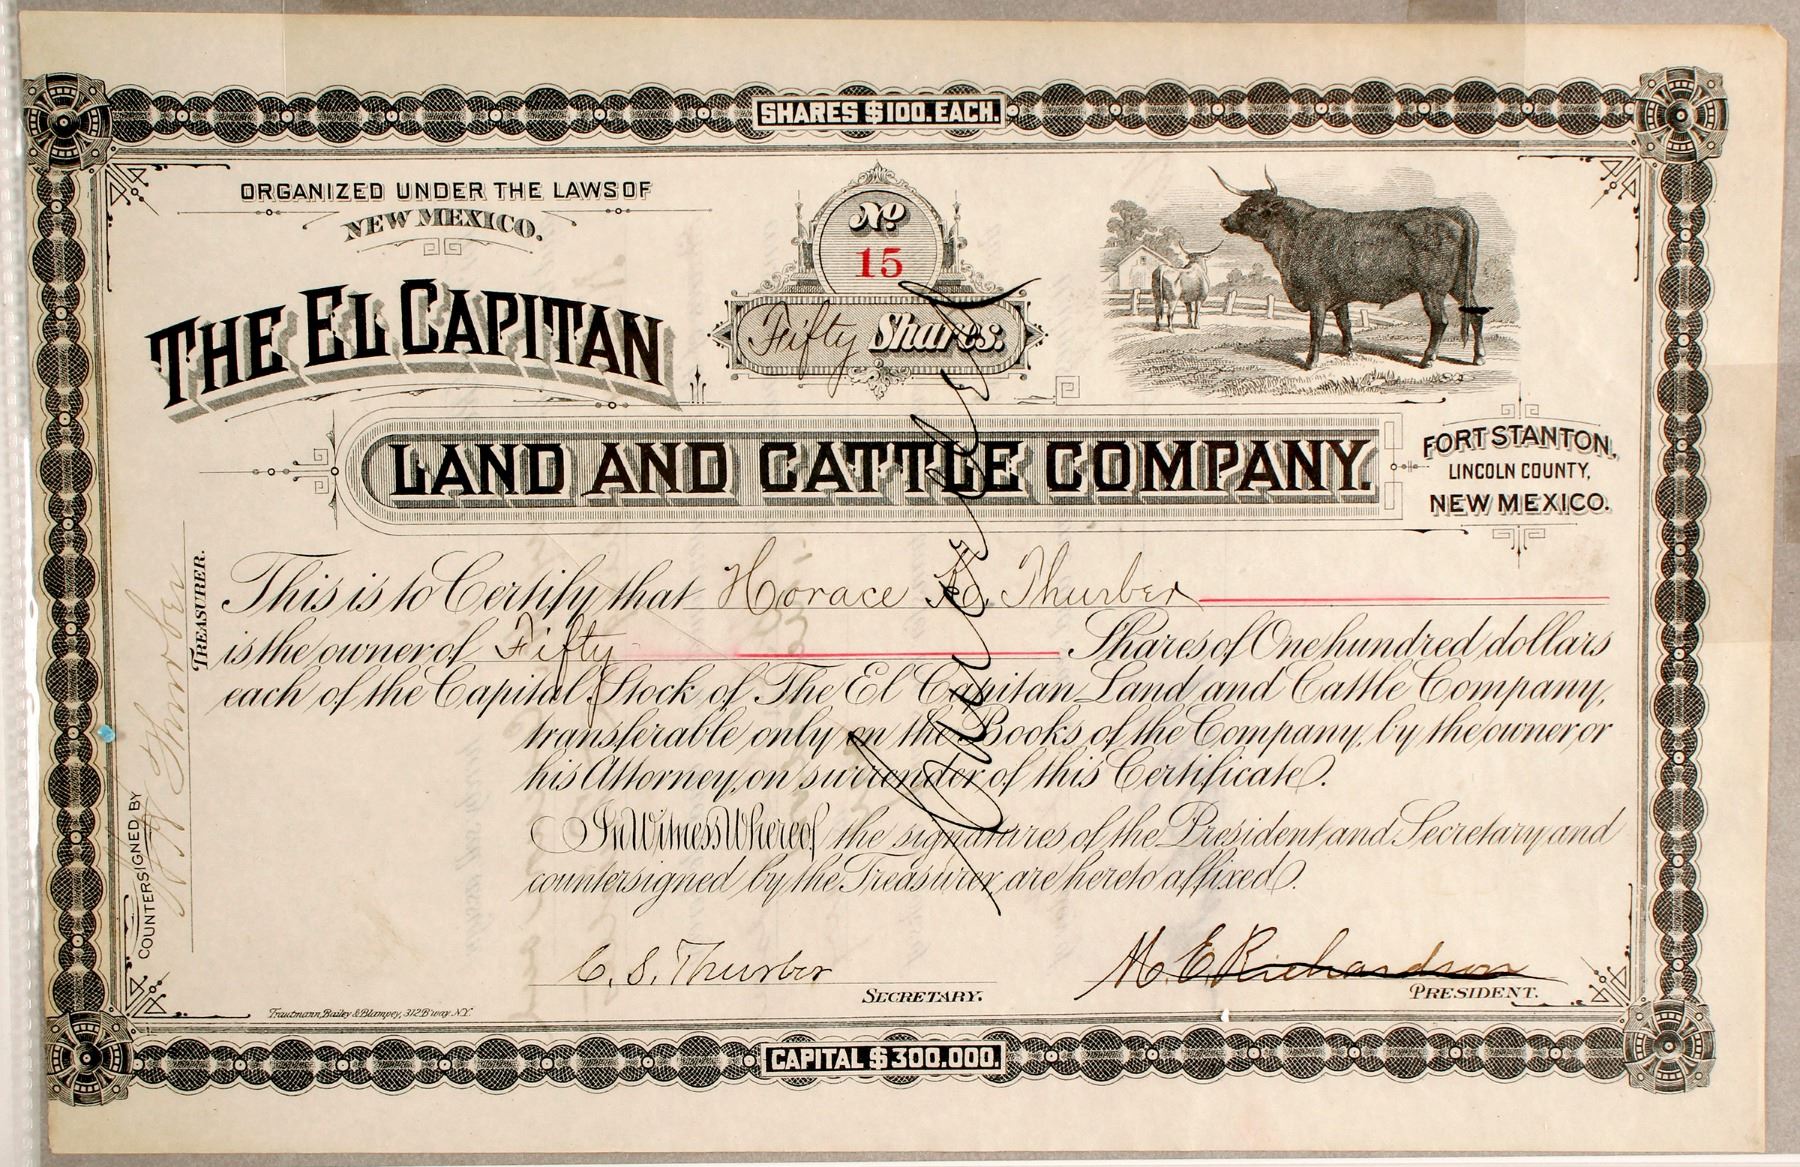 SHARES $100. EACH.
ORGANIZED UNDER THE LAWS OF
NEW MEXICO.
No
15
Fifty Shares.
THE EL CAPITAN
LAND AND CATTLE COMPANY.
FORT STANTON,
LINCOLN COUNTY,
NEW MEXICO.
This is to Certify that Horace K. Thurber
is the owner of Fifty Shares of One hundred dollars
each of the Capital Stock of The El Capitan Land and Cattle Company,
transferable only on the Books of the Company, by the owner or
his Attorney, on surrender of this Certificate.
In Witness Whereof the signatures of the President and Secretary and
countersigned by the Treasurer, are hereto affixed.
Cancelled
COUNTERSIGNED BY
Thurber
TREASURER.
C. S. Thurber
SECRETARY.
M. E. Richardson
PRESIDENT.
Trautmann, Bailey & Blampey, 312 B'way N.Y.
CAPITAL $300.000.